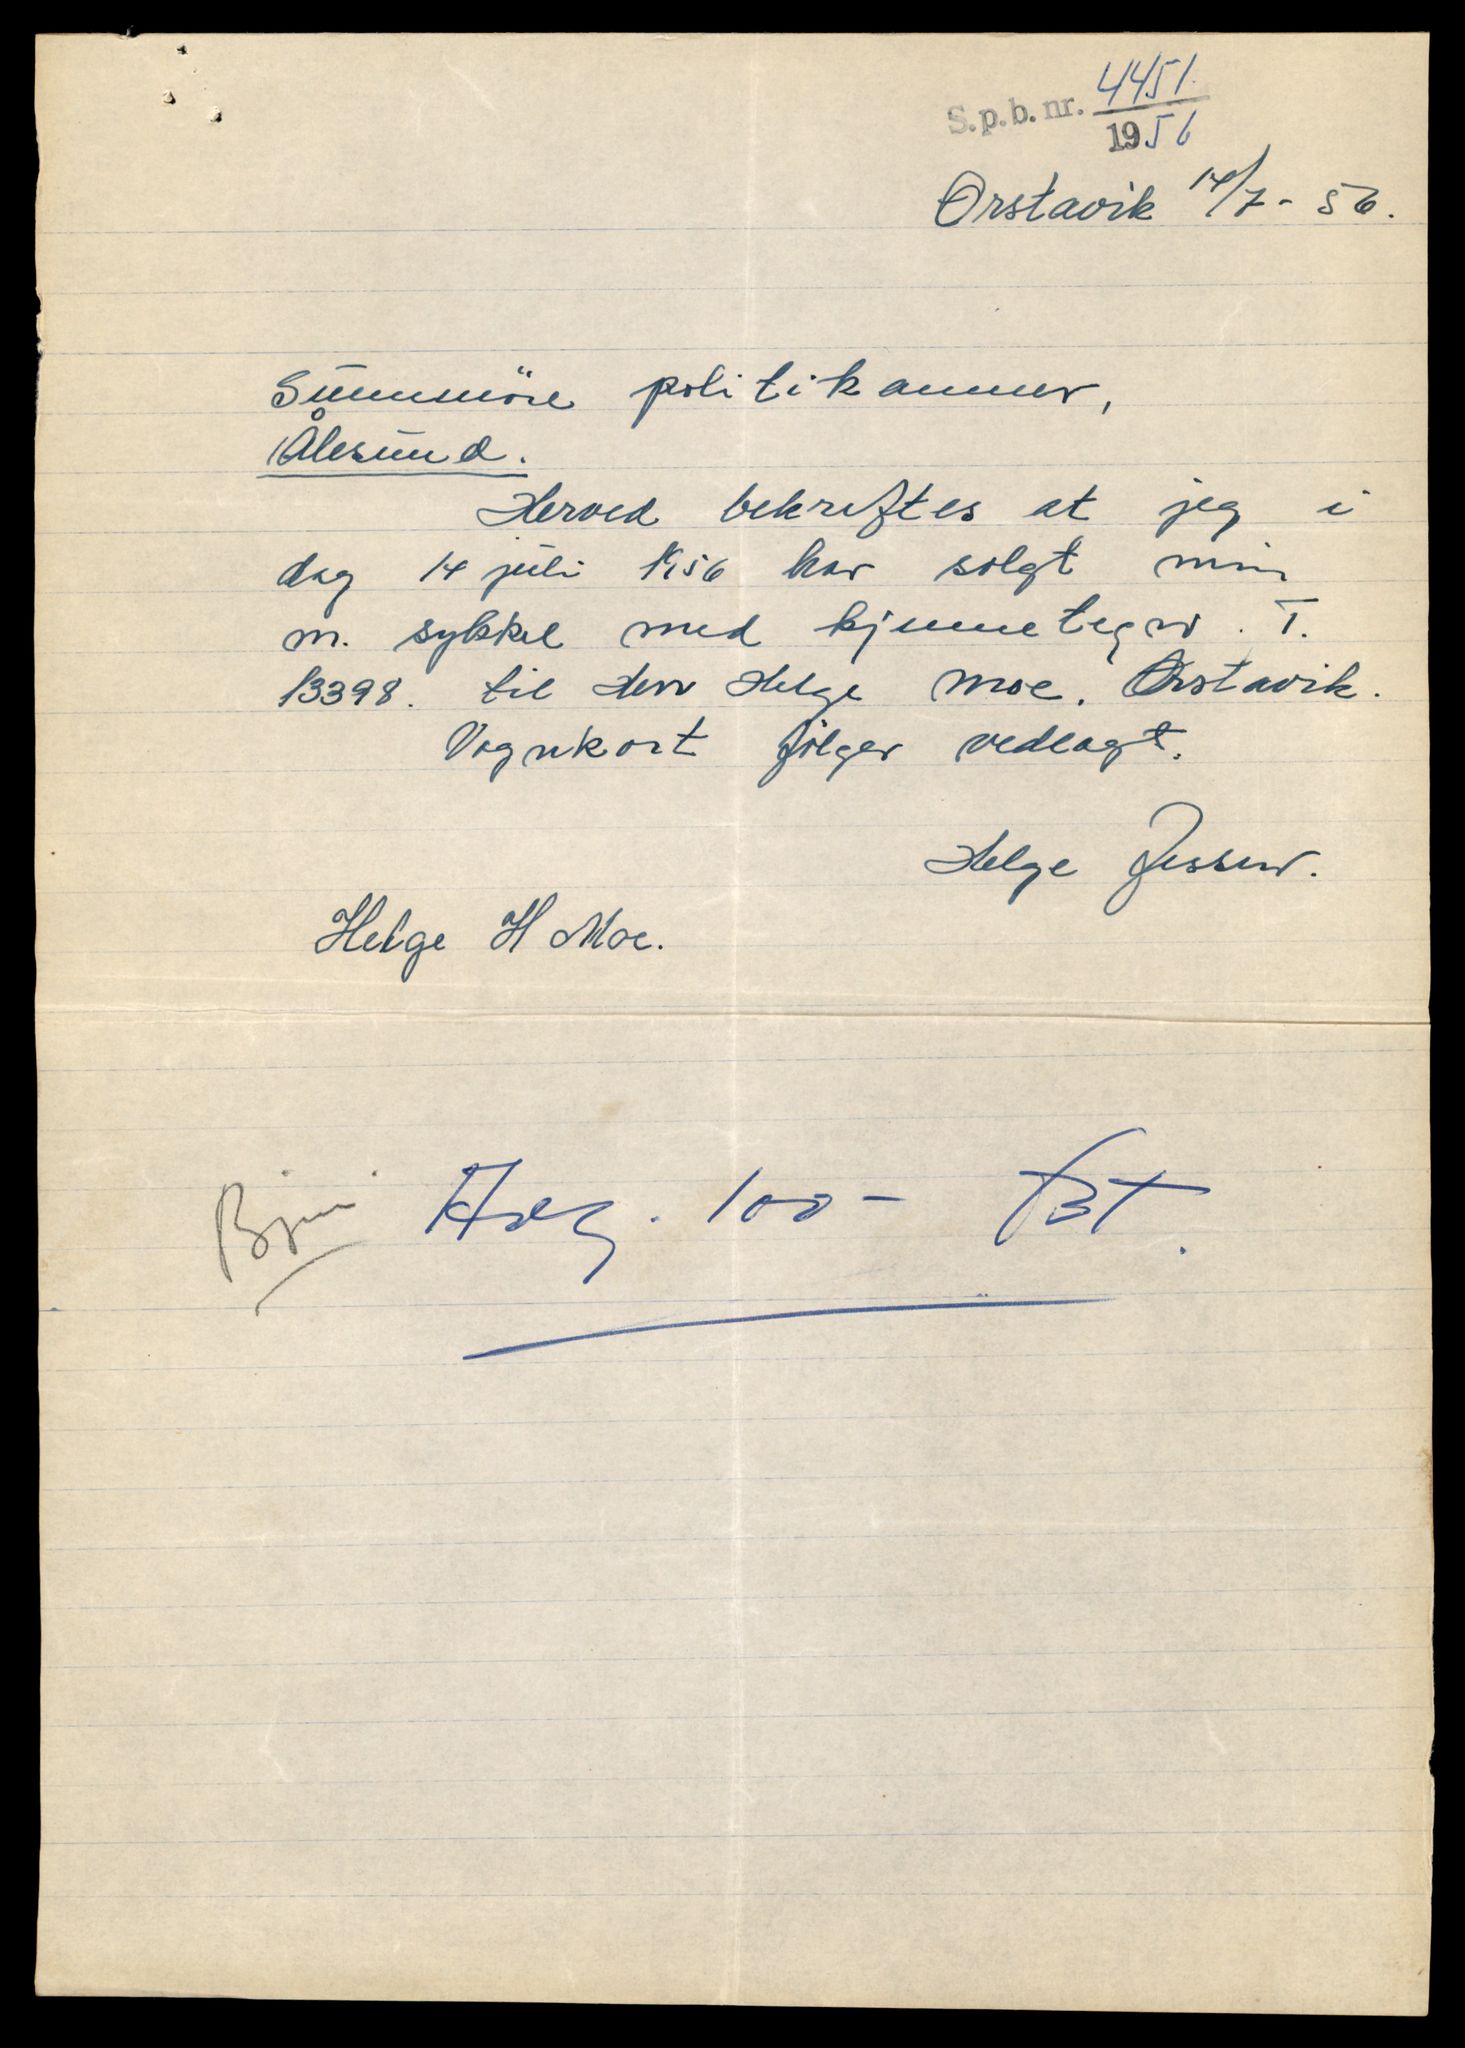 S.p.b. nr. 4451.
1956
Ørstavik 14/7 - 56.
Sunnmöre politikammer,
Ålesund.
Herved bekreftes at jeg i
dag 14 juli 1956 har solgt min
m. sykkel med kjennetegn. T.
13398. til Herr Helge Moe. Ørstavik.
Vognkort fölger vedlagt.
Helge Jessen.
Helge H Moe.
100 -